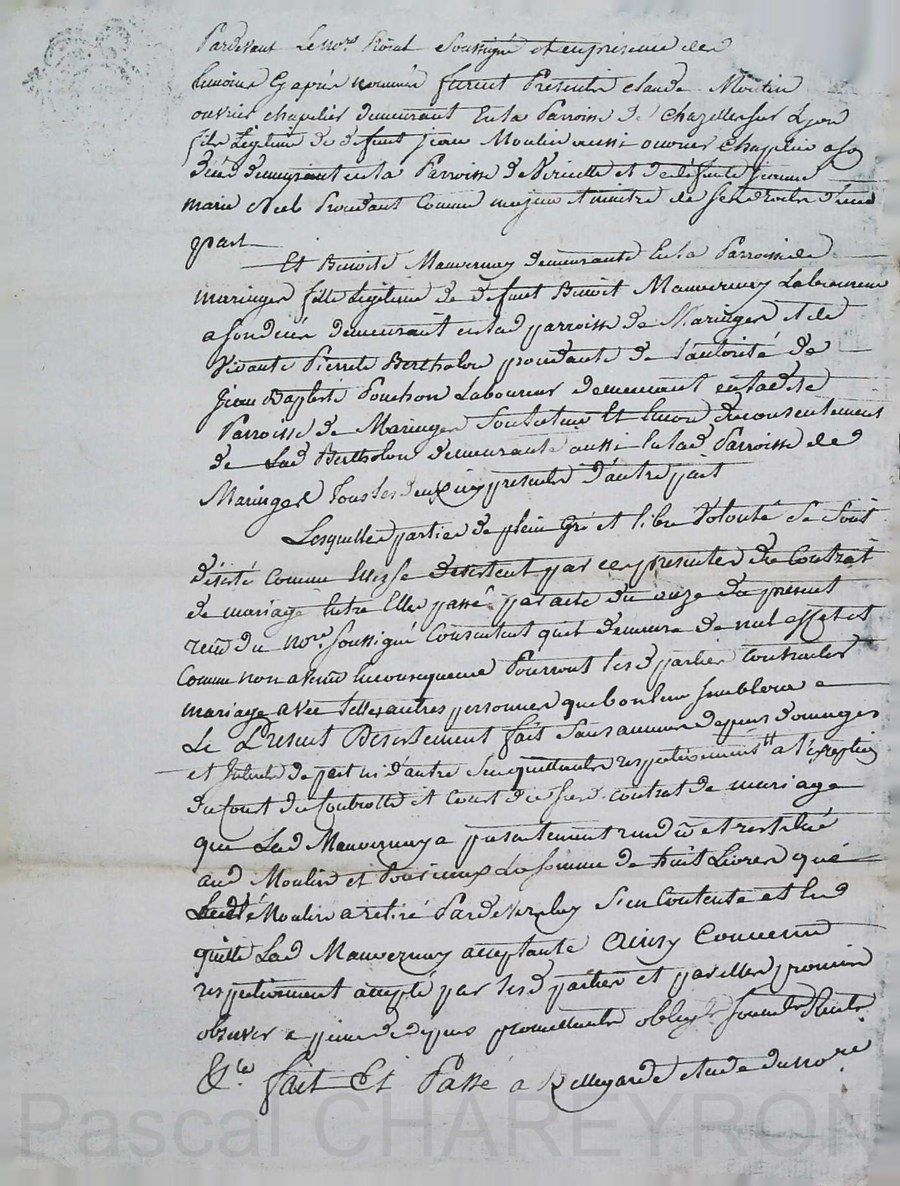 Pardevant Le no.re Royal Soussigné et en presence des
temoins Cy apres nommés furent Presents claude Moulin
ouvrier chapelier demeurant En la Parroisse de Chazelles sur Lyon
fils Legitime de defunt jean Moulin aussi ouvrier chapelier a son
deces demeurant en la Parroisse de Viricelle et de defunte
marie Procedant Comme majeur et maitre de ses droits d'une
part
Et Benoite Mauvernay demeurante En la Parroisse de
maringes fille Legitime de defunt Benoit Mauvernay Laboureur
a son deces demeurant en lad parroisse de Maringes et de
Vivante Pierrete Bertholon procedante de l'autorité de
jean Baptiste Ponchon Laboureur demeurant en ladite
Parroisse de Maringes Et encor de consentement
de Lad Bertholon demeurante aussi En lad Parroisse de
Maringes Tous les deux icy presents d'autre part
Lesquelles parties de plein Gré et libre Volonté Se Sont
désisté Comme Elles se desistent par ces presentes du Contrat
de mariage Entre Elles passé par acte du onze du present
recu du no.re Soussigné Consentent qu'il demeure de nul effet et
Comme non avenu En consequence Pourront lesd parties contracter
mariage avec telles autres personnes que bon leur Semblera
Le Present Desistement fait Sans aucuns depens domages
et Interets de part ni d'autre S'en quittants respectivement a l'exception
du Cout du Controlle et Court dud contrat de mariage
que Lad Mauvernay a presentement rendu et restitué
aud Moulin et La Somme de huit Livres que
Ledt Moulin a retiré Pardevers luy S'en Contente et En
quitte Lad Mauvernay acceptante Ainsy Convenu
respectivement accepté par lesd parties et par elles promis
observer a peine de depens promettants obligeants
&c.re fait Et Passé à Bellegarde etude du no.re
Pascal CHAREYRON